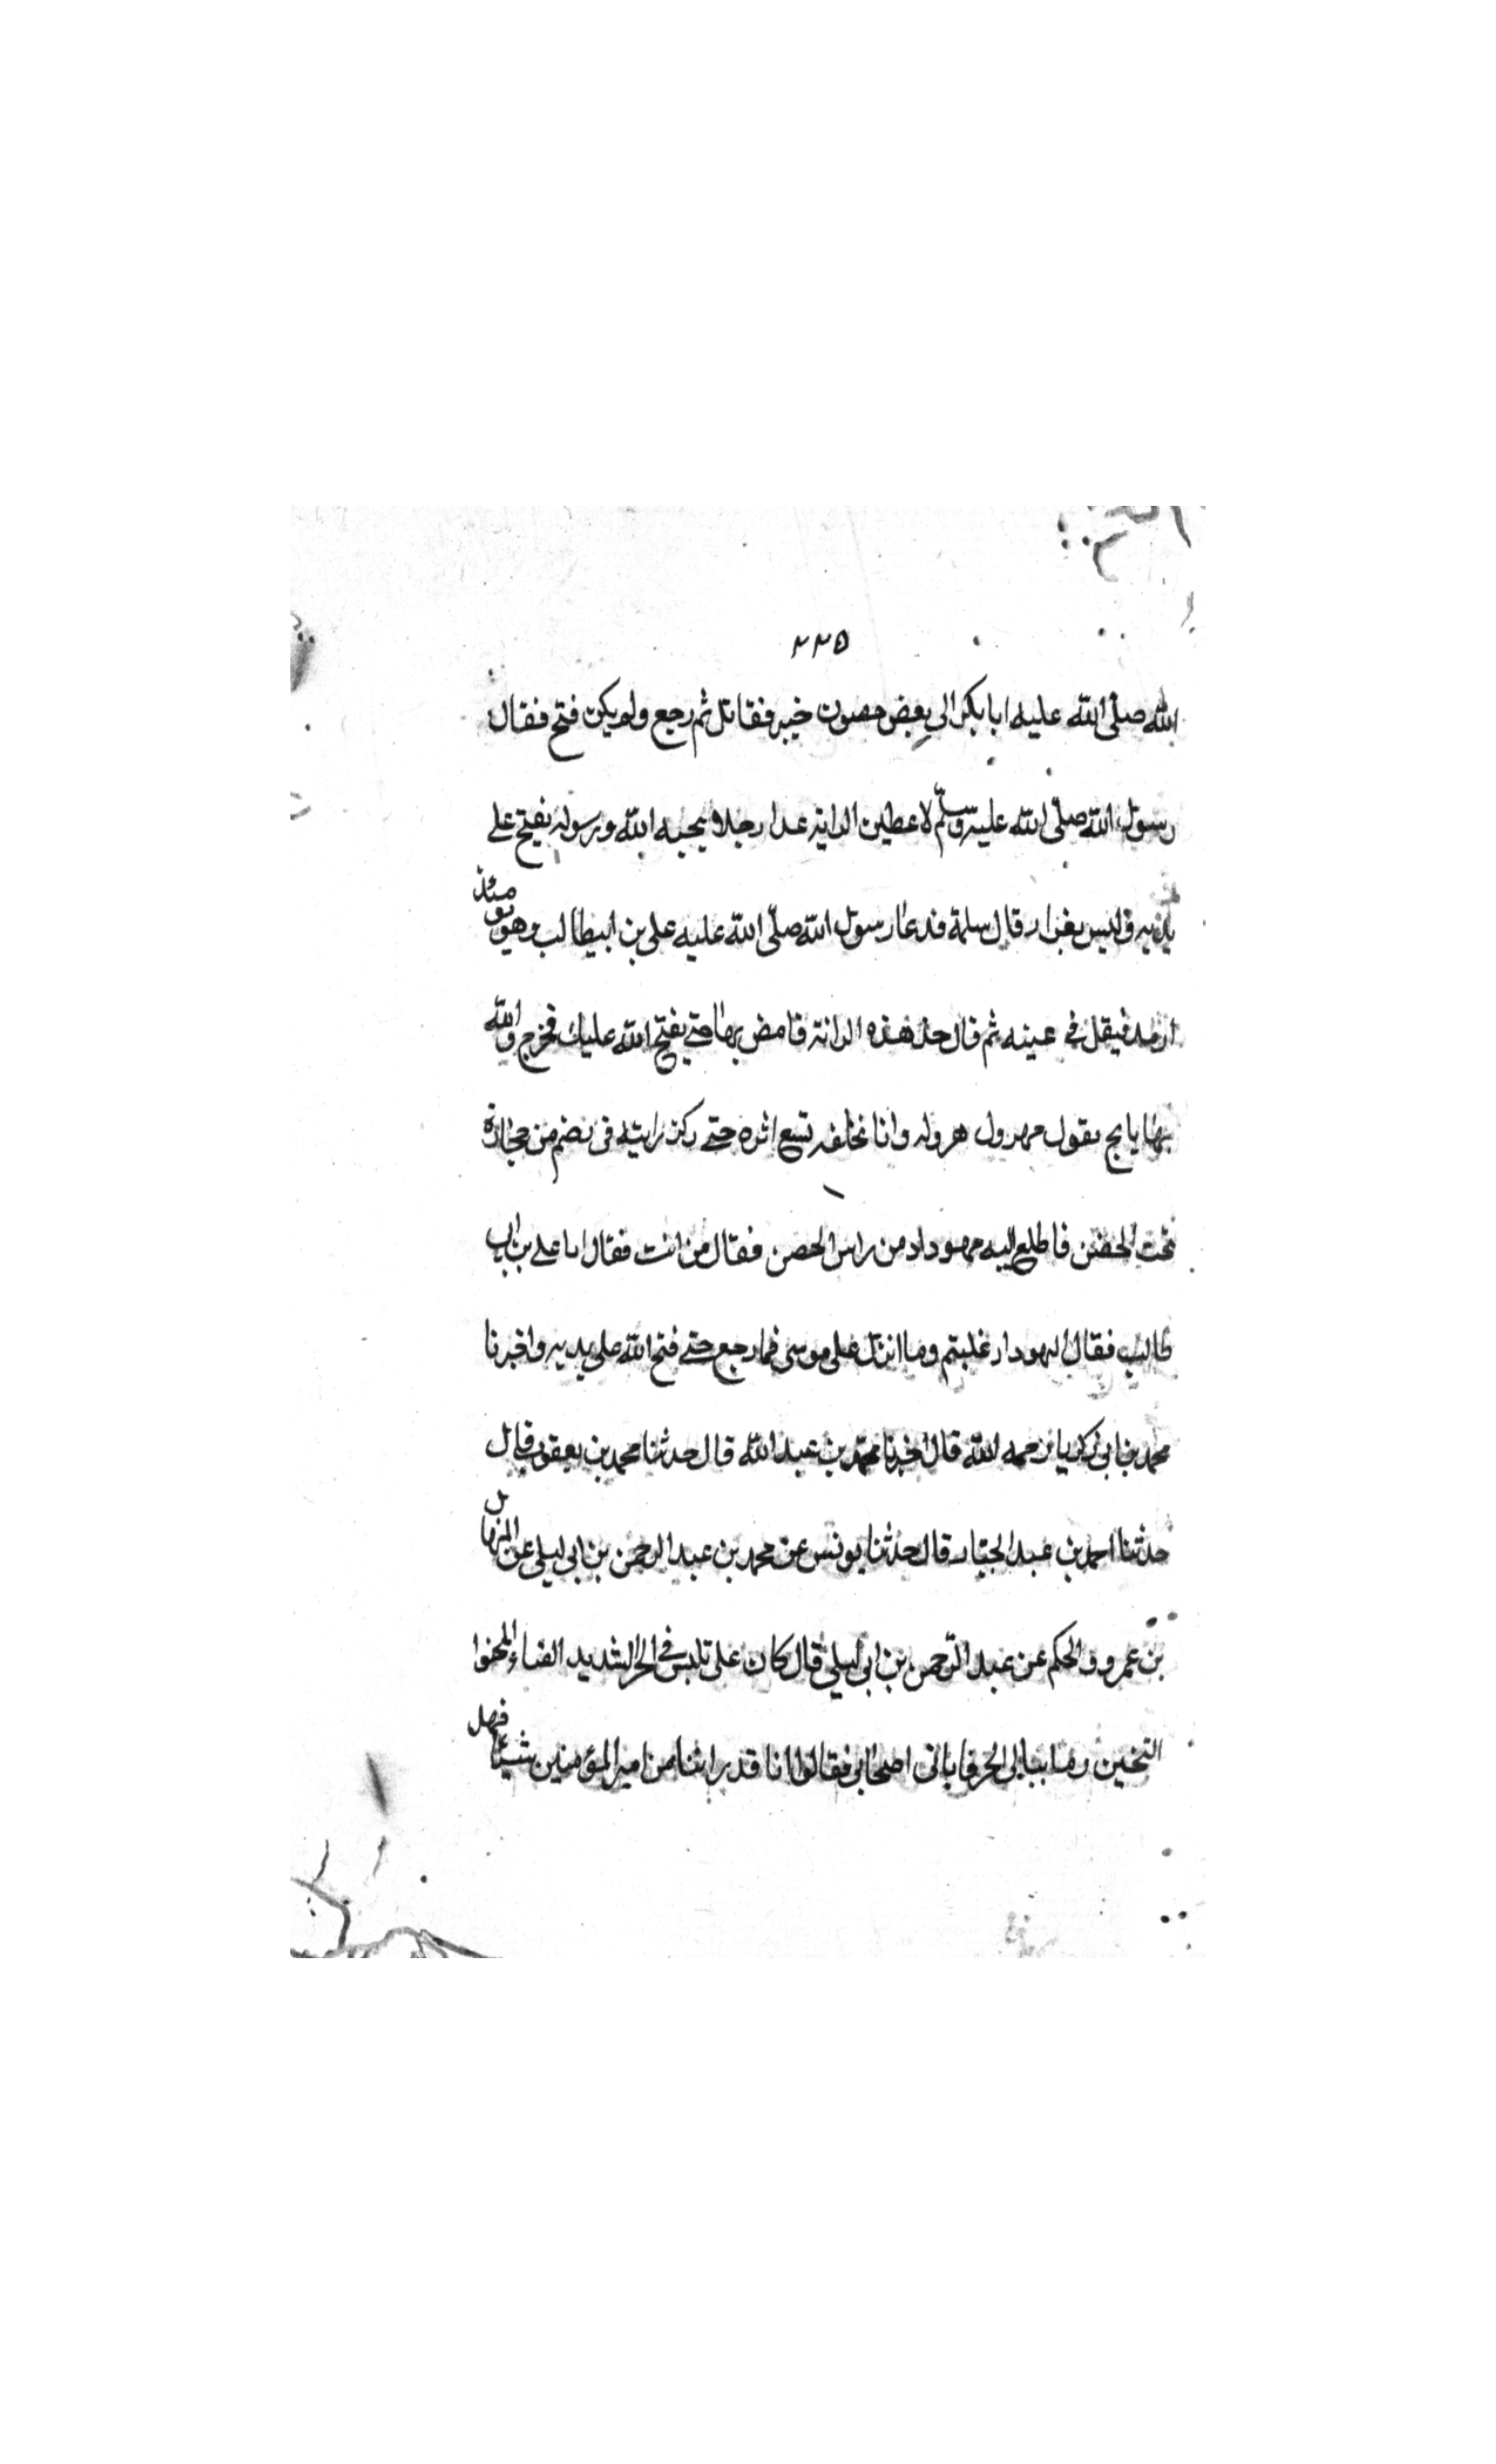 ٢٢٥
الله صلى الله عليه ابا بكر الى بعض حصون خيبر فقاتل ثم رجع ولم يكن فتح فقال
رسول الله صلى الله عليه وسلم لاعطين الراية غدا رجلا يحبه الله ورسوله يفتح على
يديه وليس بفرار قال سلمة فدعا رسول الله صلى الله عليه على بن ابيطالب وهو يومئذ
ارمد فيقل في عينه ثم قال خذ هذه الراية فامض بها حتى يفتح الله عليك فخرج والله
بها يايج يقول مهرول هرولة وانا نخلفه نتبع اثره حتى ركز رايته في رضم من حجارة
تحت الحصن فاطلع اليه يهودا من راس الحصن فقال من انت فقال انا على بن ابى
طالب فقال اليهودا غلبتم وما انزل على موسى فما رجع حتى فتح الله على يديه واخبرنا
محمد بن ابى زكريا رحمه الله قال اخبرنا محمد بن عبد الله قال حدثنا محمد بن يعقوب قال
حدثنا احمد بن عبد الجبار قال حدثنا يونس عن محمد بن عبد الرحمن بن ابى ليلى عن المنهال
بن عمرو والحكم عن عبد الرحمن بن ابى ليلى قال كان على تلبس في الحر الشديد القباء المحشوا
الثخين وما يبالى الحر فاتانى اصحابى فقالوا انا قد راينا من امير المؤمنين شيئا فهل